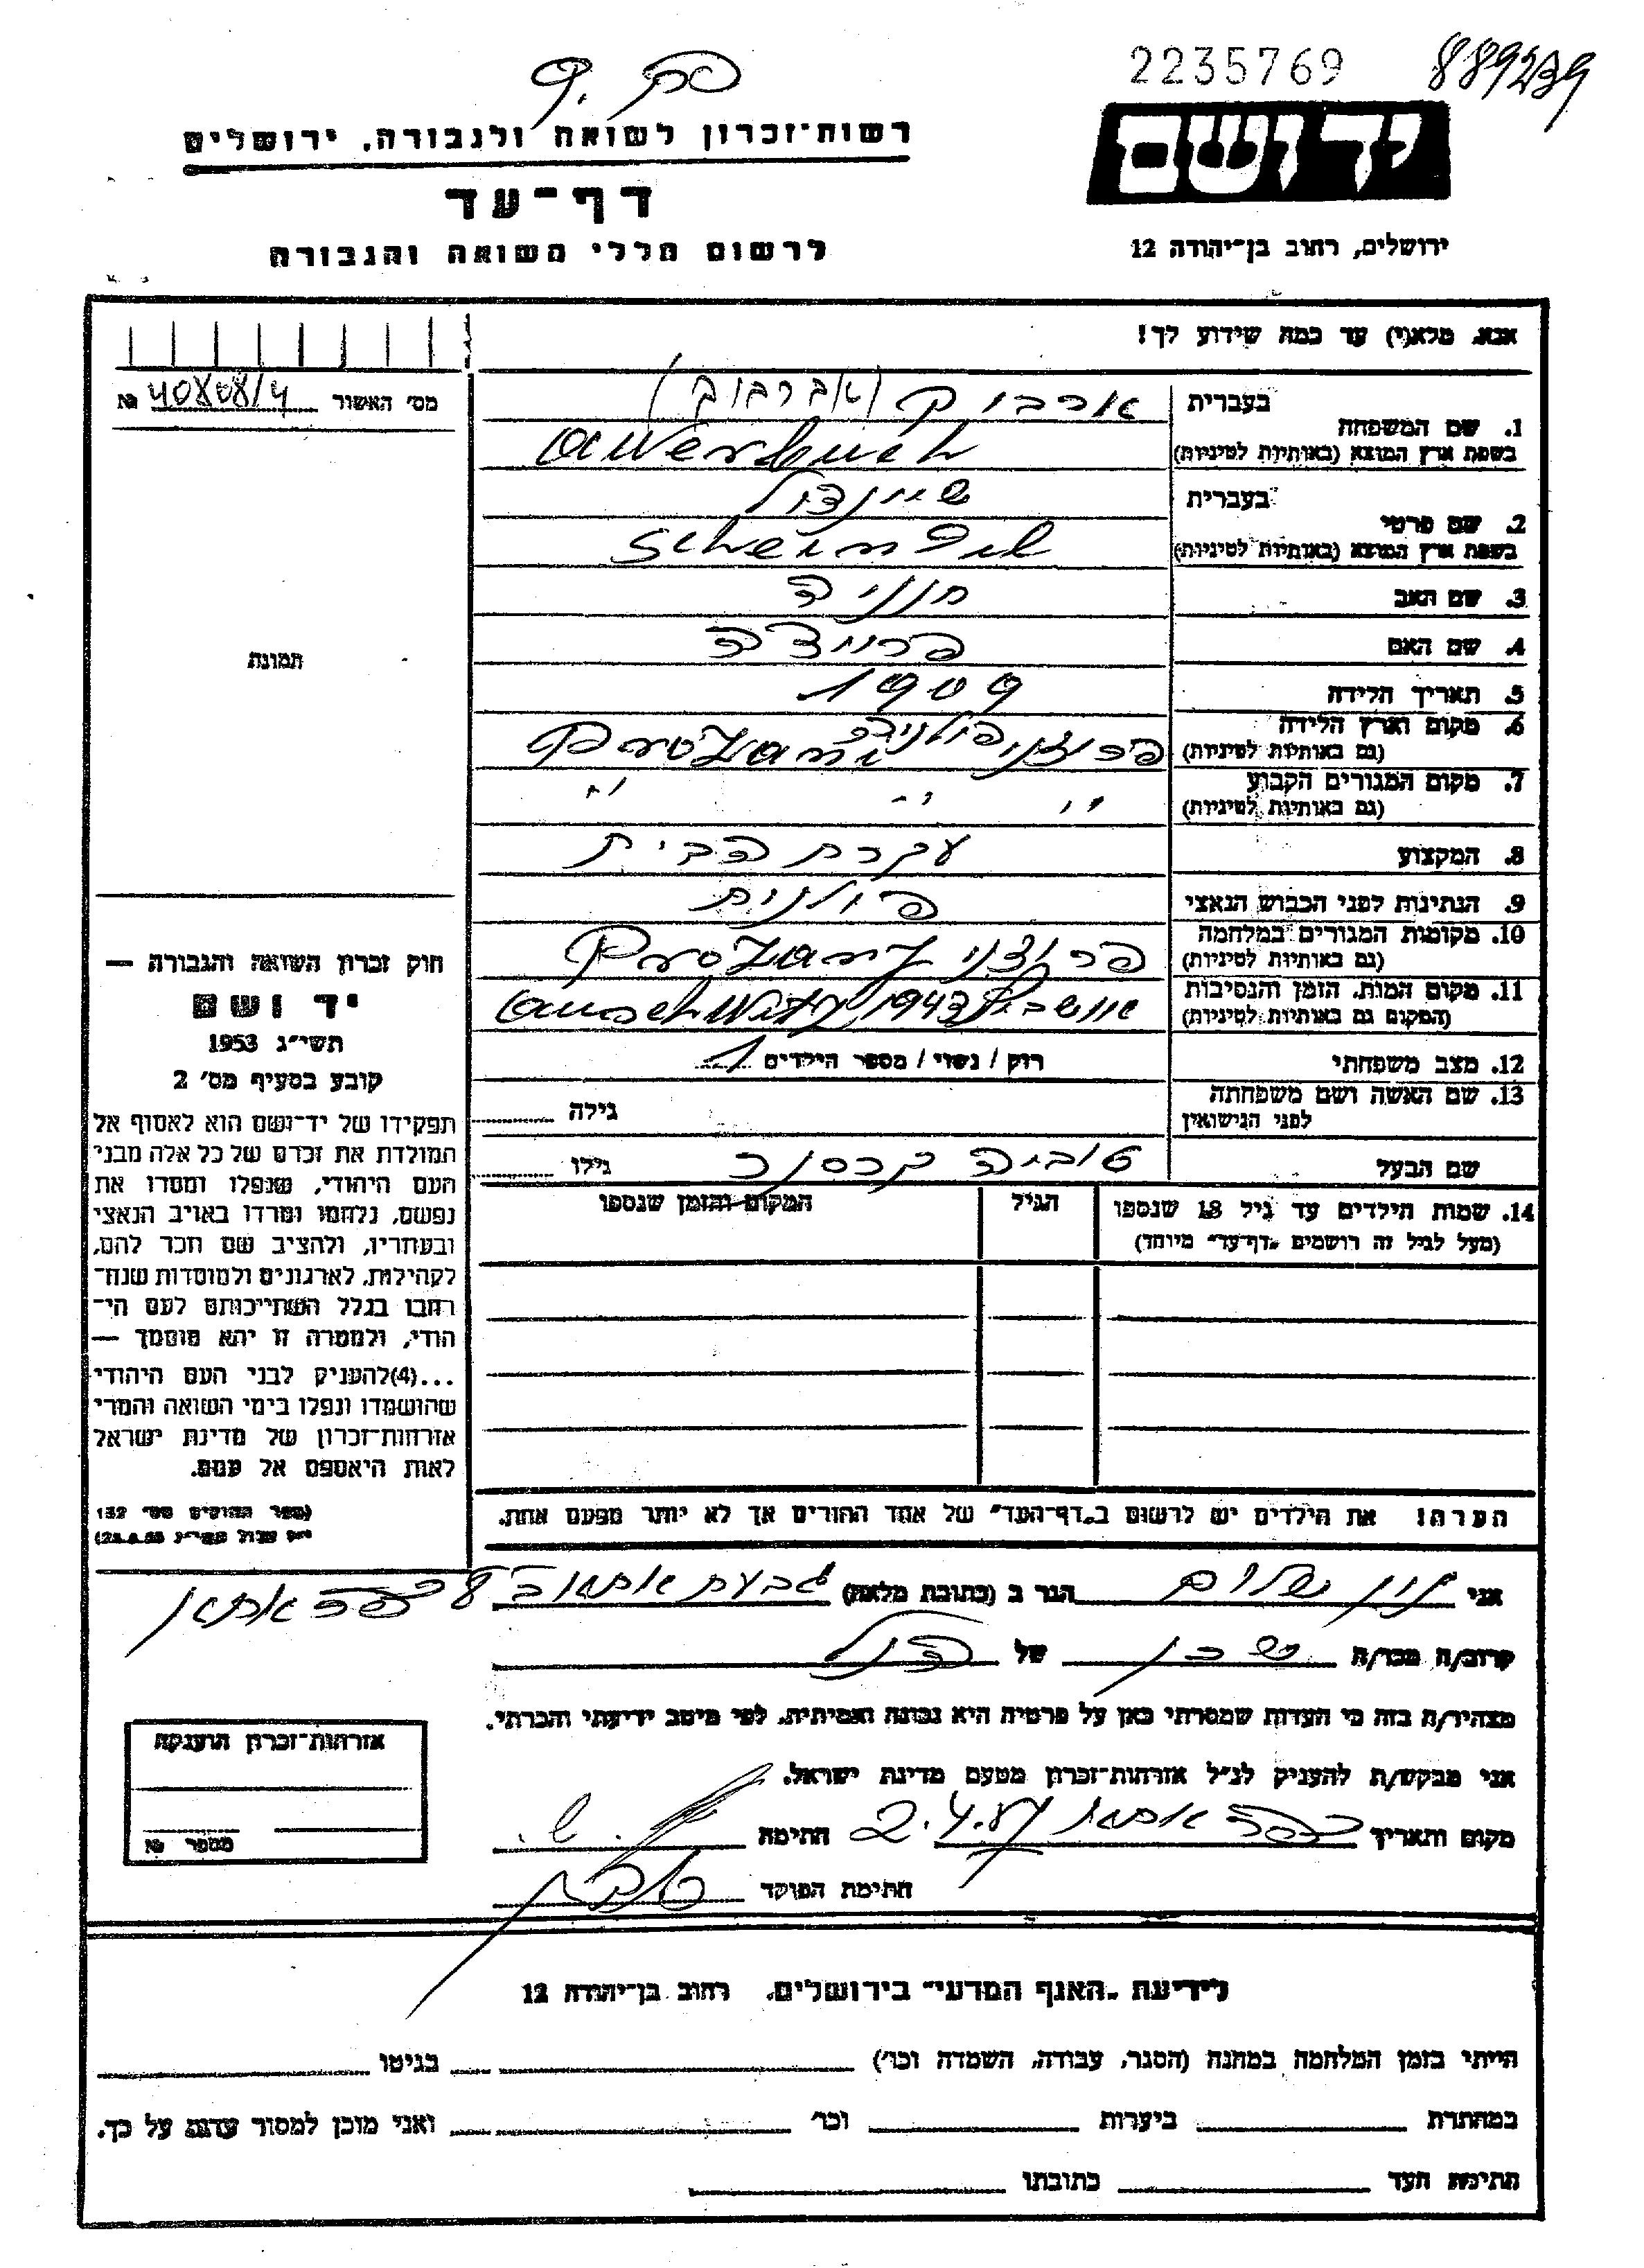 2235769 889239
יד ושם
ירושלים, רחוב בן־יהודה 12
רשות־זכרון לשואה ולגבורה, ירושלים
דף־עד
לרשום חללי השואה והגבורה
אנא, מלא(י) עד כמה שידוע לך!
מס׳ האשור 40808/4 №
1. שם המשפחה
בעברית ארבוק (אברבוך)
בשפת ארץ המוצא (באותיות לטיניות) Awerbuch
2. שם פרטי
בעברית שיינדול
בשפת ארץ המוצא (באותיות לטיניות)
3. שם האב חנניה
4. שם האם פריידה
5. תאריך הלידה 1909
6. מקום וארץ הלידה
(גם באותיות לטיניות) פרוזני פולניה Prozani
7. מקום המגורים הקבוע
(גם באותיות לטיניות) ״ ״ ״
8. המקצוע עקרת הבית
9. הנתינות לפני הכבוש הנאצי פולנית
10. מקומות המגורים במלחמה
(גם באותיות לטיניות) פרוזני Prozany
11. מקום המות, הזמן והנסיבות
(המקום גם באותיות לטיניות) אושביץ 1943 Auschwitz
12. מצב משפחתי רוק / נשוי / מספר הילדים 1
13. שם האשה ושם משפחתה
לפני הנישואין גילה
שם הבעל טוביה קרסנר גילו
14. שמות הילדים עד גיל 18 שנספו
(מעל לגיל זה רושמים „דף־עד״ מיוחד)
הגיל
המקום והזמן שנספו
הערה! את הילדים יש לרשום ב„דף־העד״ של אחד ההורים אך לא יותר מפעם אחת.
תמונה
חוק זכרון השואה והגבורה —
יד ושם
תשי״ג 1953
קובע בסעיף מס׳ 2
תפקידו של יד־ושם הוא לאסוף אל
המולדת את זכרם של כל אלה מבני
העם היהודי, שנפלו ומסרו את
נפשם, נלחמו ומרדו באויב הנאצי
ובעוזריו, ולהציב שם וזכר להם,
לקהילות, לארגונים ולמוסדות שנח־
רבו בגלל השתייכותם לעם הי־
הודי, ולמטרה זו יהא מוסמך —
...(4)להעניק לבני העם היהודי
שהושמדו ונפלו בימי השואה והמרי
אזרחות־זכרון של מדינת ישראל
לאות היאספם אל עמם.
(ספר החוקים מס׳ 132
אני שלום הגר ב (כתובת מלאה) גבעת
קרוב/ה מכר/ה שכן של הנ״ל
מצהיר/ה בזה כי העדות שמסרתי כאן על פרטיה היא נכונה ואמיתית, לפי מיטב ידיעתי והכרתי.
אני מבקש/ת להעניק לנ״ל אזרחות־זכרון מטעם מדינת ישראל.
מקום ותאריך 2.4.87 חתימה
חתימת הפוקד
אזרחות־זכרון הוענקה
מספר №
לידיעת „האגף המדעי״ בירושלים, רחוב בן־יהודה 12
הייתי בזמן המלחמה במחנה (הסגר, עבודה, השמדה וכו׳) בגיטו
במחתרת ביערות וכו׳ ואני מוכן למסור עדות על כך.
חתימת העד כתובתו